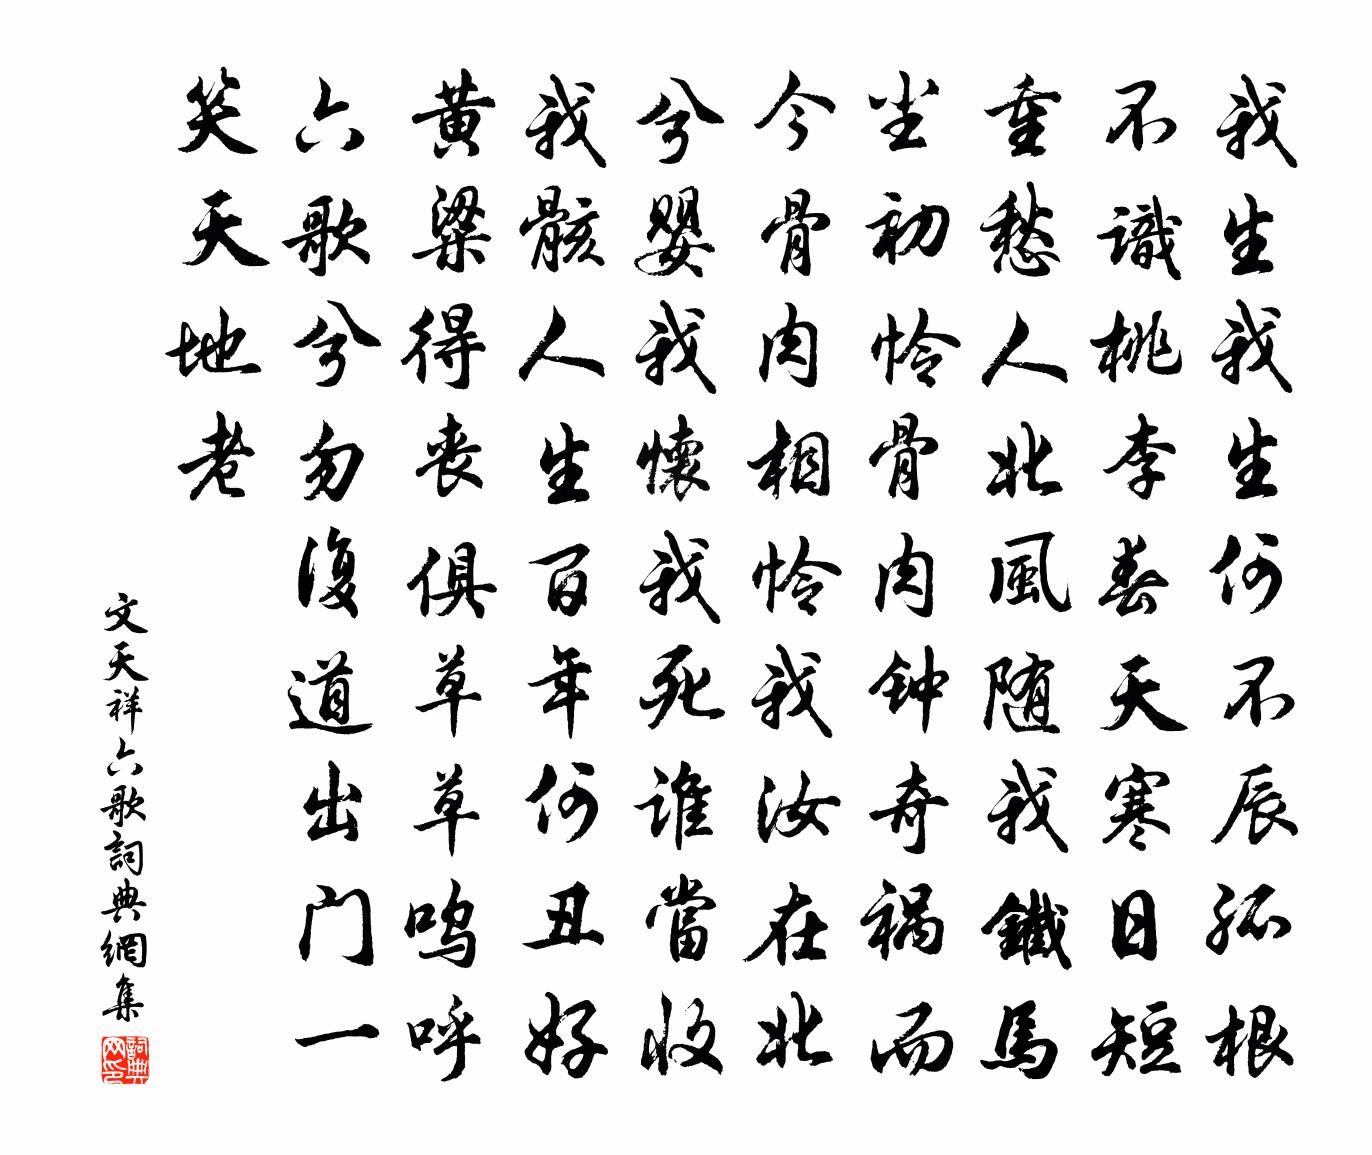 我生我生何不辰孤根
不識桃李春天寒日短
重愁人北風随我鐵馬
尘初怜骨肉钟奇祸而
今骨肉相怜我汝在北
兮嬰我懷我死谁當收
我骸人生百年何丑好
黄粱得丧俱草草鸣呼
六歌兮勿復道出门一
笑天地老
文天祥六歌詞典網集
詞典网印